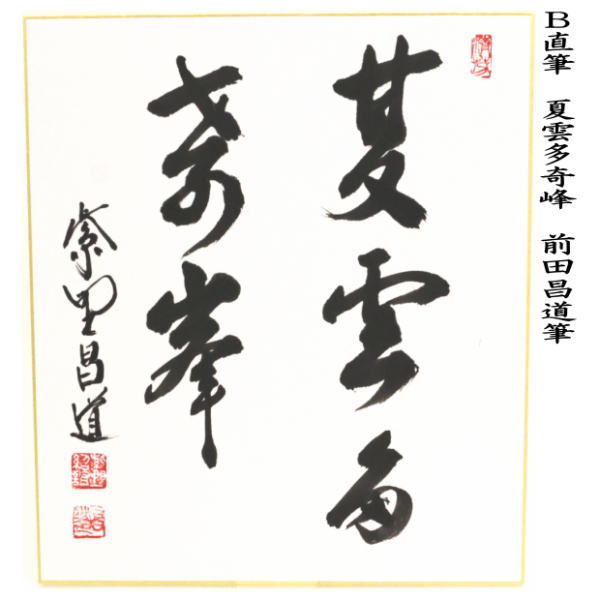 B直筆　夏雲多奇峰　前田昌道筆
夏雲多
奇峯
紫野昌道